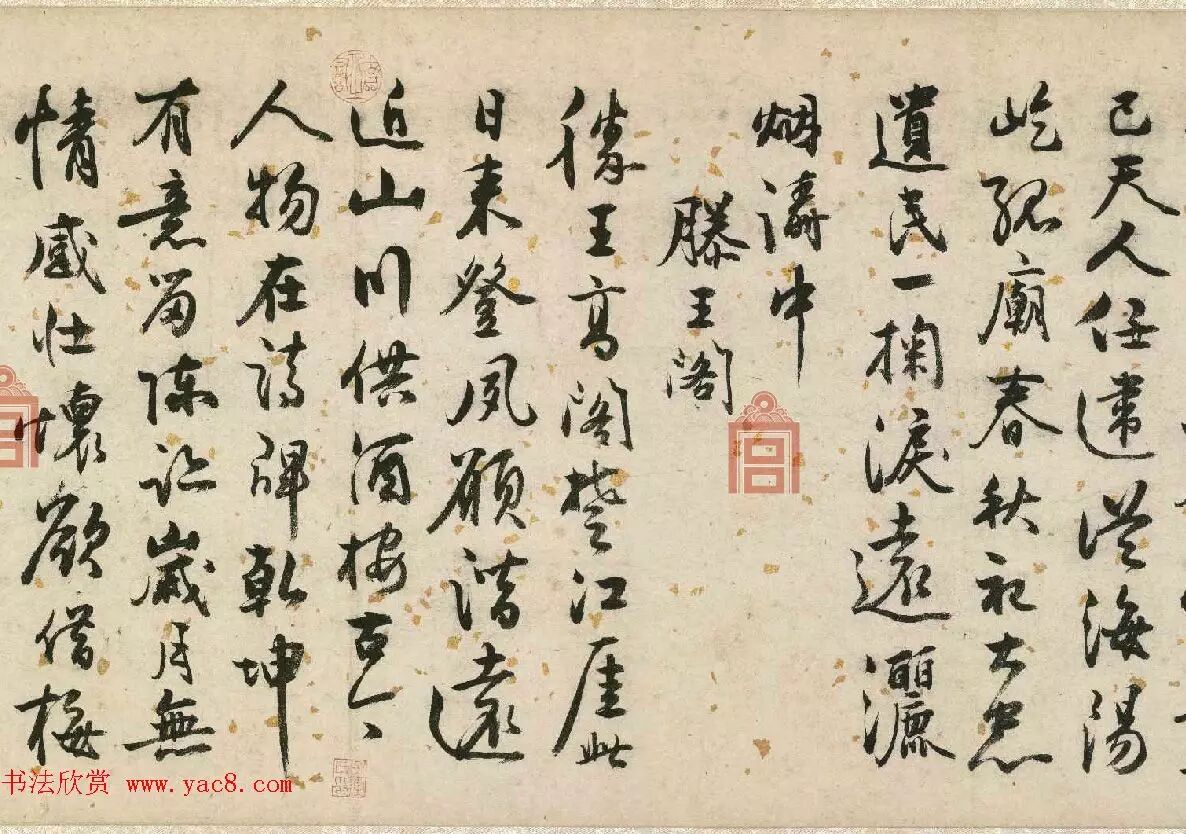 已天人任建溪海陽
屹孤廟春秋祀大忠
遺民一掬淚遠灑
烟濤中
滕王閣
滕王高閣楚江厓此
日来登夙願諧遠
近山川供酒樓古今
人物在詩碑乾坤
有意留陳迹歲月無
情感壯懷欲借梅
书法欣赏 www.yac8.com